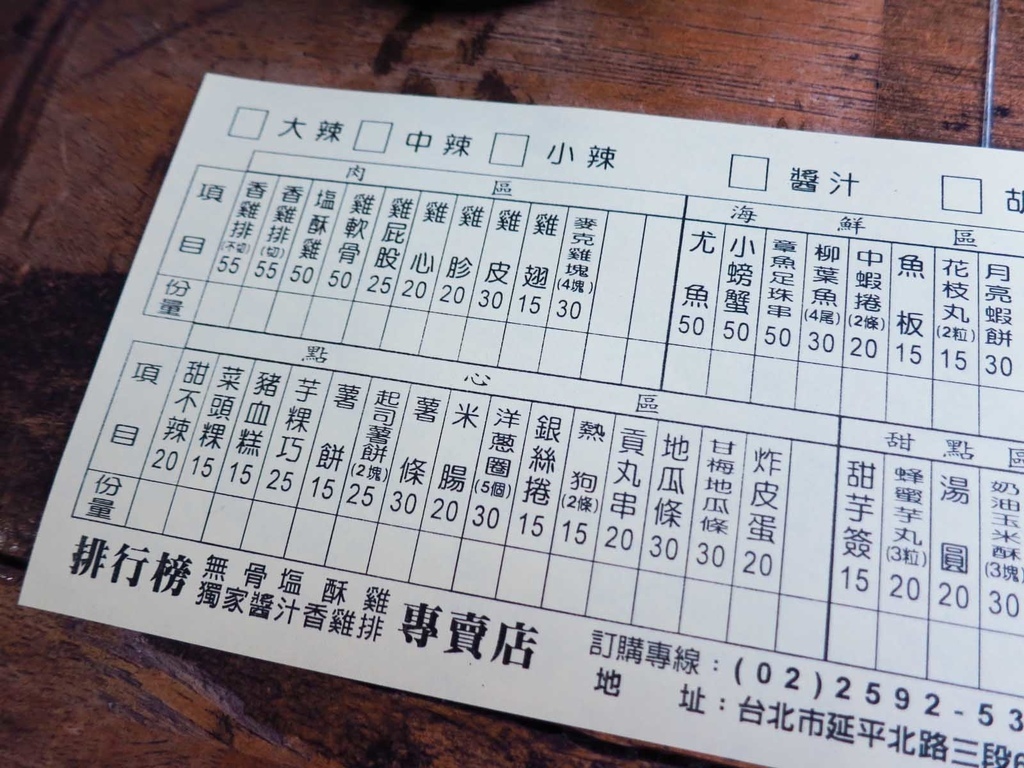 □ 大辣 □ 中辣 □ 小辣 □ 醬汁 □ 胡
肉區 海鮮區
項目 香雞排(不切)55 香雞排(切)55 塩酥雞50 雞軟骨50 雞屁股25 雞心20 雞胗20 雞皮30 雞翅15 麥克雞塊(4塊)30 尤魚50 小螃蟹50 章魚足珠串50 柳葉魚(4尾)30 中蝦捲(2條)20 魚板15 花枝丸(2粒)15 月亮蝦餅30
份量
點心區 甜點區
項目 甜不辣20 菜頭粿15 豬血糕15 芋粿巧25 薯餅15 起司薯餅(2塊)25 薯條30 米腸20 洋蔥圈(5個)30 銀絲捲15 熱狗(2條)15 貢丸串20 地瓜條30 甘梅地瓜條30 炸皮蛋20 甜芋簽15 蜂蜜芋丸(3粒)20 湯圓20 奶油玉米酥(3塊)30
份量
排行榜 無骨塩酥雞 獨家醬汁香雞排 專賣店
訂購專線：(02)2592-53
地址：台北市延平北路三段6